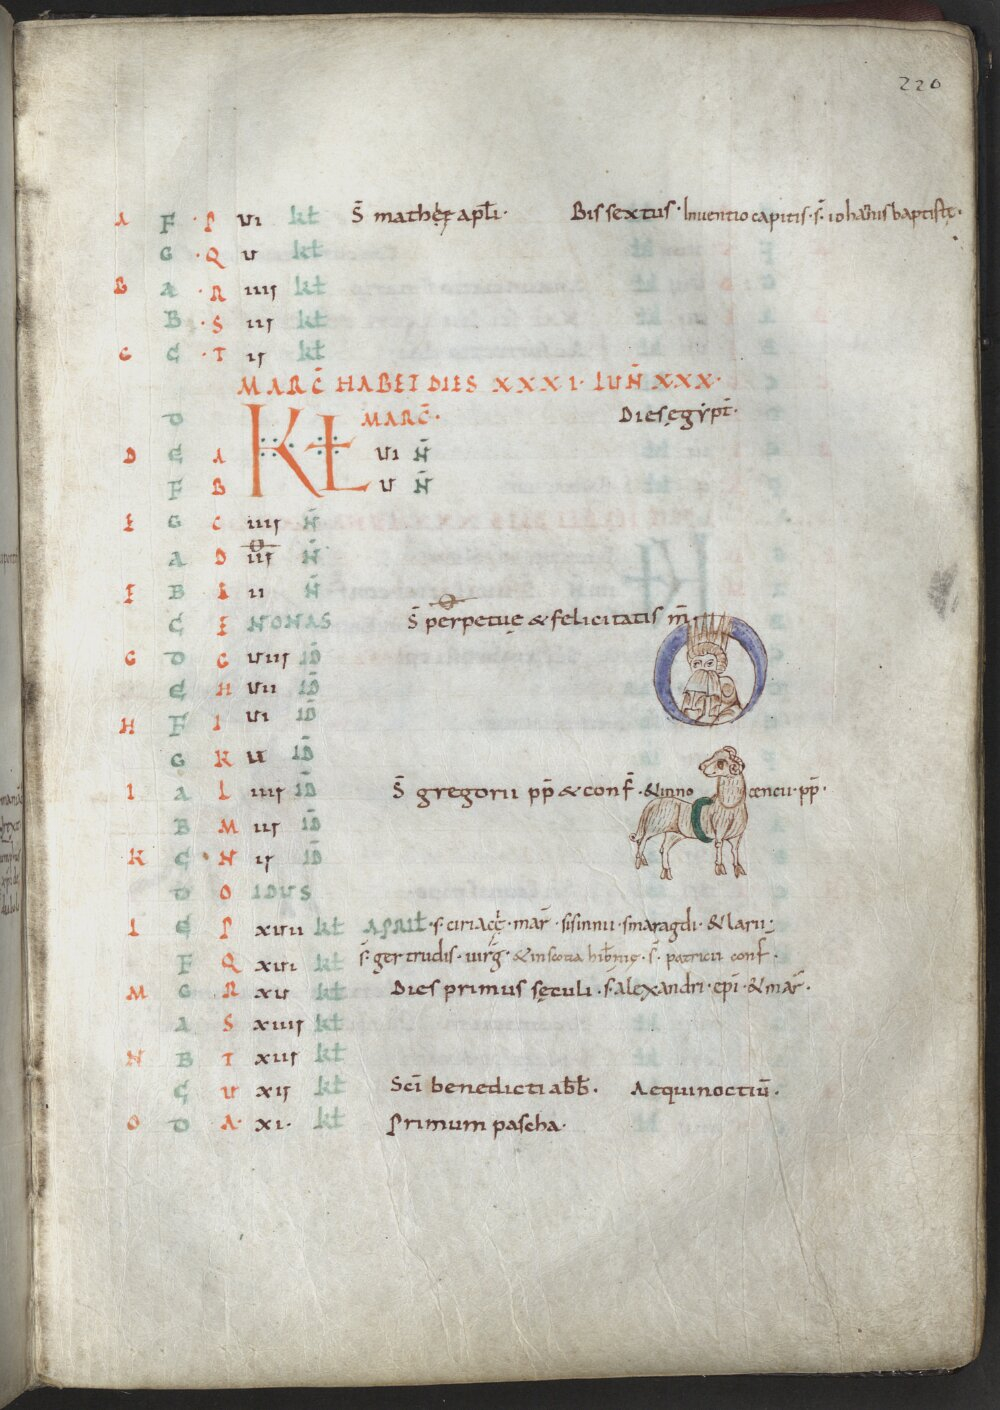 220
A F · P VI kł S̄ mathęę apłi · Bissextus · Inuentio capitis · s̄ · iohannis baptistę ·
G · Q V kł
B A · R IIIJ kł
B · S IIJ kł
C C · T IJ kł
MARC̄ HABET DIES XXXI · LUN̄ XXX ·
D KŁ MARC̄ · Dies ęgypt̄ ·
D E A VI N̄
F B V N̄
E G C IIIJ N̄
A D IIJ N̄
F B E II N̄
C F NONAS S̄ perpetuę & felicitatis m̄
G D G VIIJ ID̄
E H VII ID̄
H F I VI ID̄
G K V ID̄
I A L IIIJ ID̄ S̄ gregorii pp̄ & conf̄ · & inno cencii · pp̄ ·
B M IIJ ID̄
K C · N IJ ID̄
D O IDUS
L E P XVII kł APRIŁ · s̄ · ciriacę · mar̄ · sisinnii · smaragdi · & larii ·
F Q XVI kł s̄ · gertrudis · uirḡ · & in scotia hib̄nię · s̄ · patricii conf ·
M G R XV kł Dies primus sęculi · s̄ · alexandri · epī · & mar̄ ·
A S XIIIJ kł
N B T XIIJ kł
C U XIJ kł Scī benedicti ab̄b̄ · Aequinoctiū ·
O D A · XI · kł Primum pascha ·